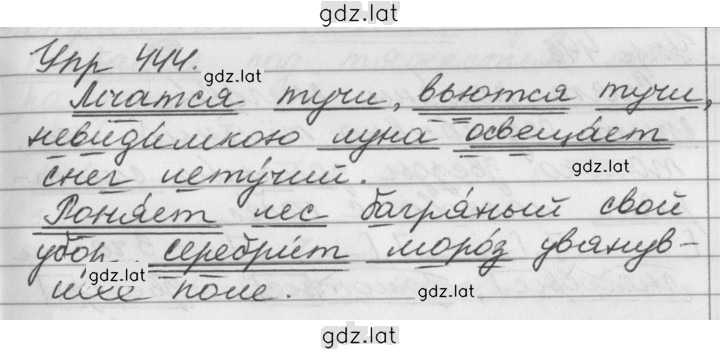 gdz.lat
Упр 444.
gdz.lat
Мчатся тучи, вьются тучи,
невидимкою луна освещает
снег летучий.
gdz.lat
Роняет лес багряный свой
убор, серебрит мороз увянув-
gdz.lat
шее поле.
gdz.lat
gdz.lat